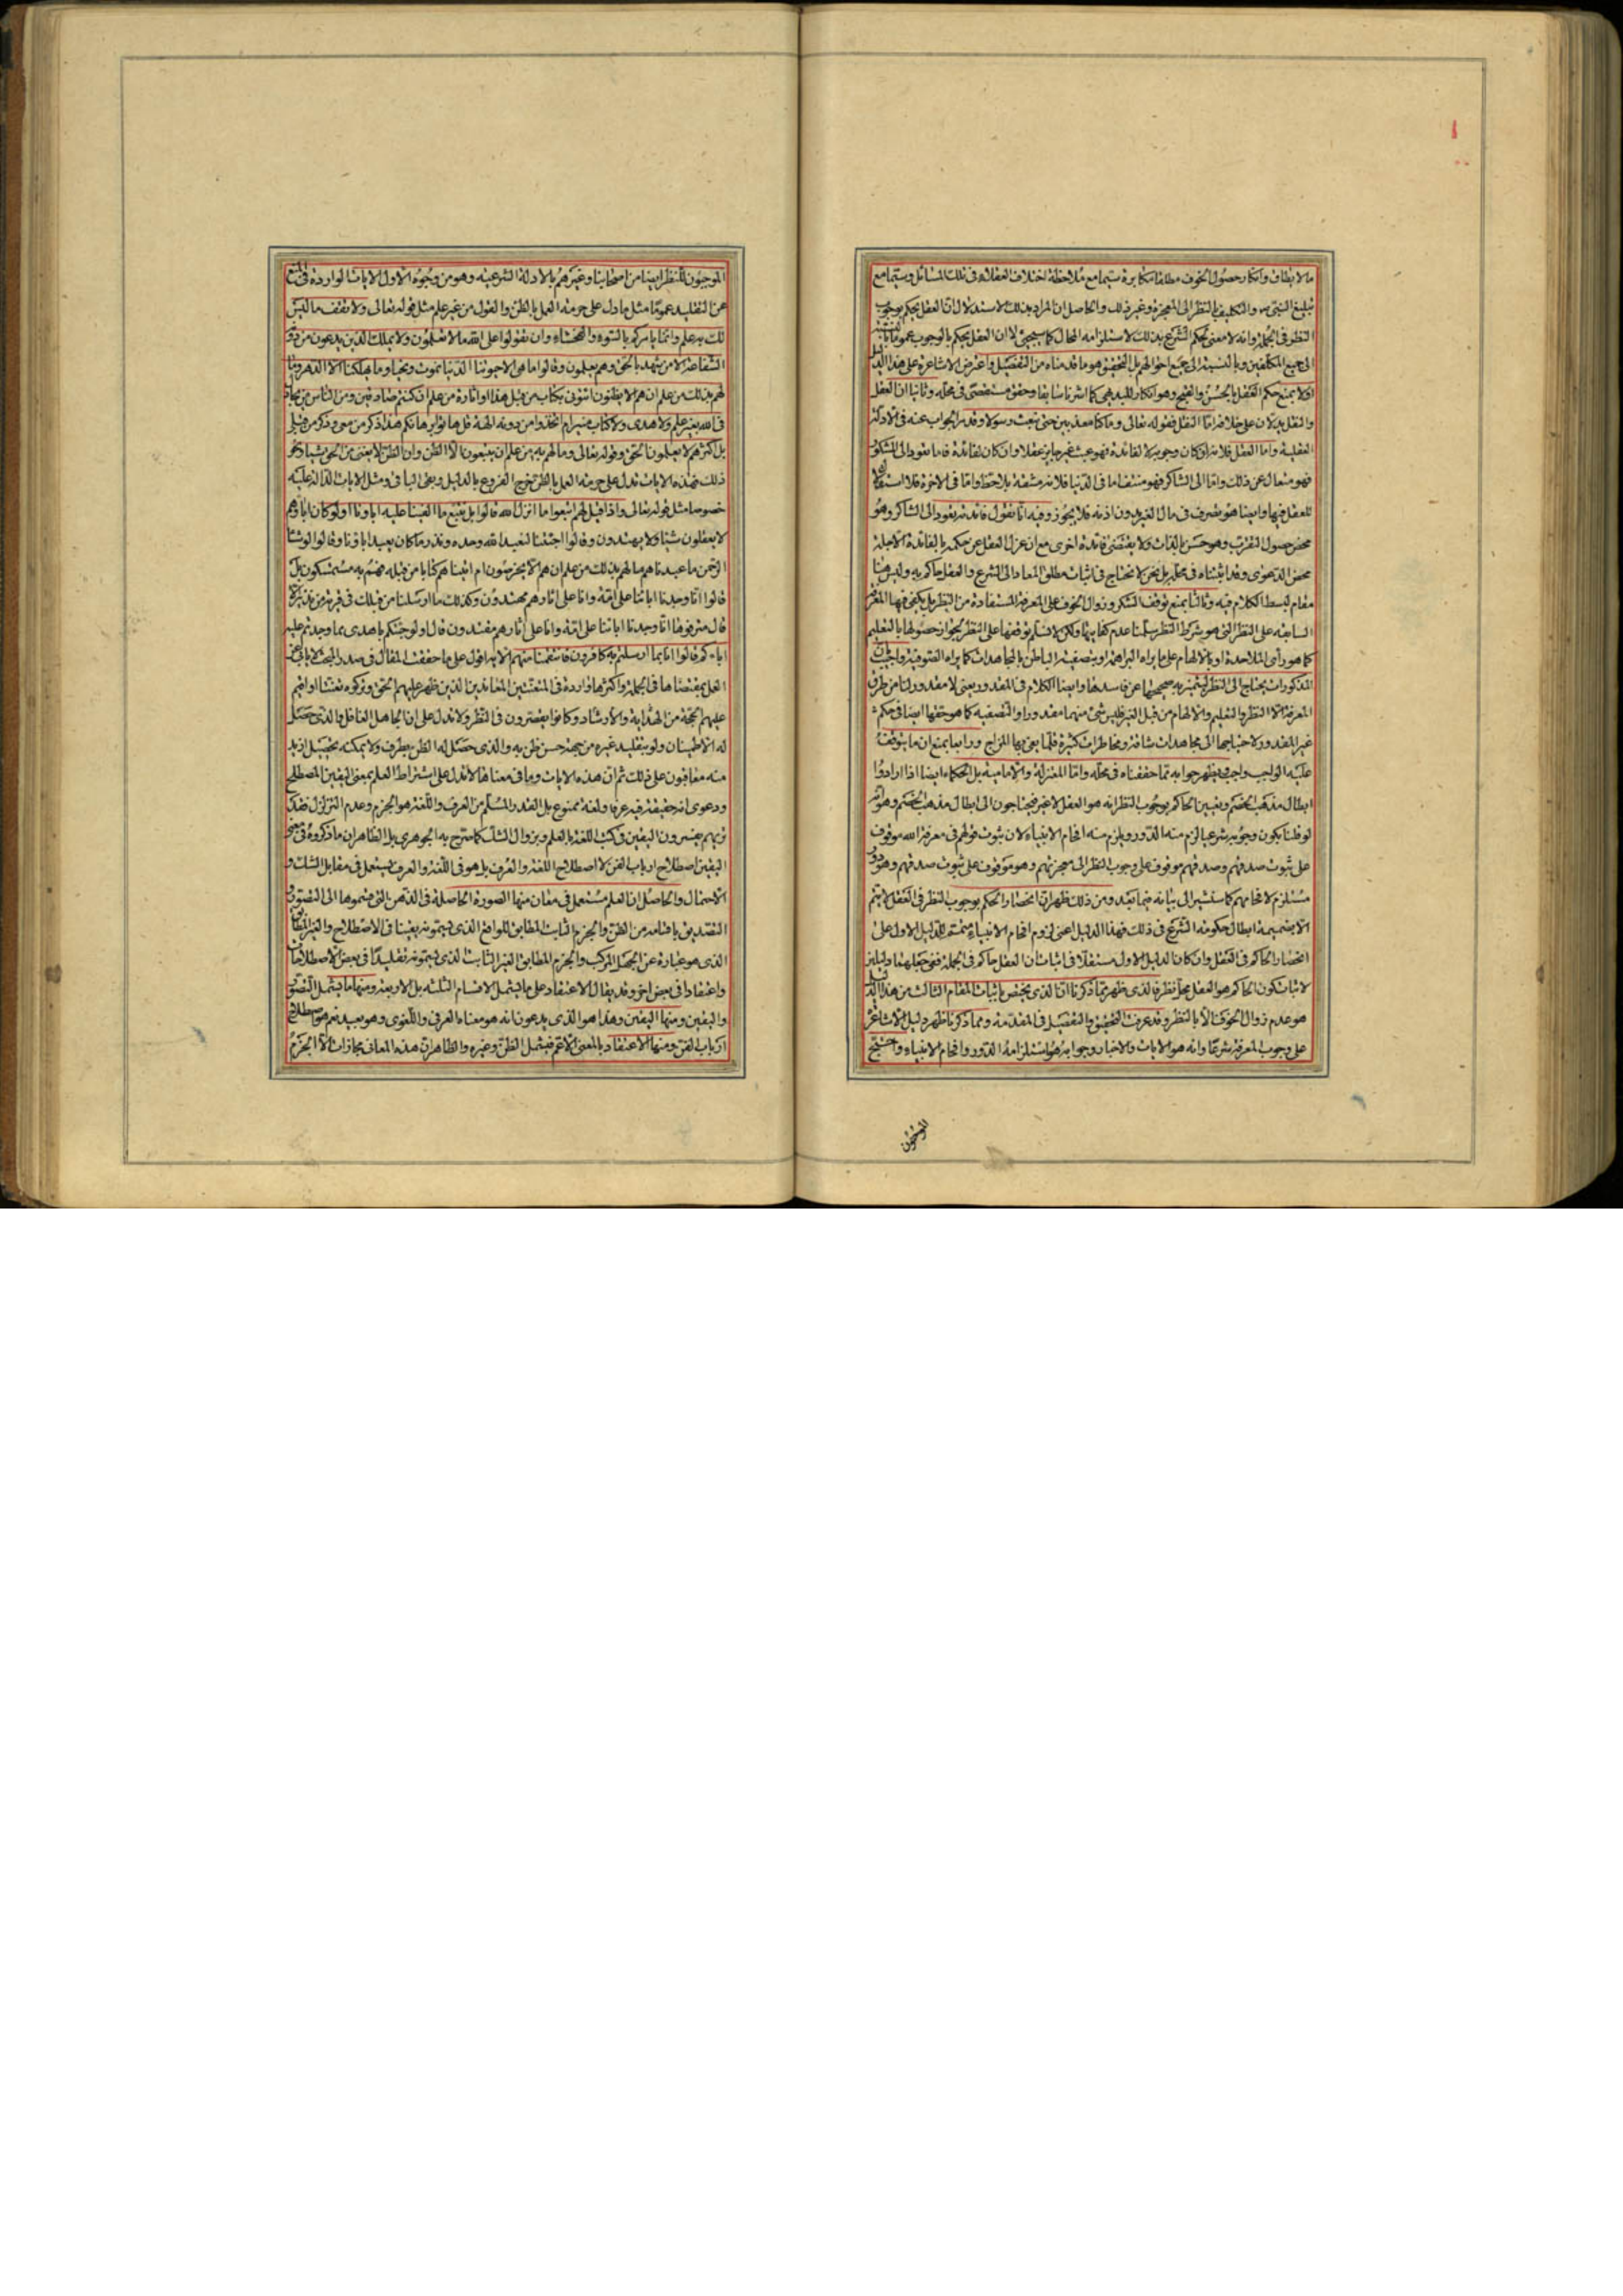 ما لا يطاق وانكار حصول الخوف مطلقا مكابرة سيما مع ملاحظة اختلاف العقلاء فى تلك المسائل وسيما مع
تبليغ النبى ص والتكليف بالنظر الى المعجزة وغير ذلك والحاصل ان المراد بذلك الاستدلال ان العقل يحكم بوجوب
النظر فى الجملة وانه لا معنى لحكم الشرع بذلك لاستلزامه المحال كما سيجيئ لا ان العقل يحكم بالوجوب عموما
الى جميع المكلفين وبالنسبة الى جميع احوالهم بل التحقيق هو ما قدمناه من التفصيل واعترض الاشاعرة على هذا الدليل
اولا بمنع حكم العقل بالحسن والقبح وهو انكار للبديهى كما اشرنا سابقا وحقق مستقصى فى محله وثانيا ان العقل
والنقل يدلان على خلافه اما النقل فقوله تعالى وما كنا معذبين حتى نبعث رسولا وقد مر الجواب عنه فى الادلة
العقلية واما العقل فلانه لو كان وجوبه لا لفائدة فهو عبث غير جايز عقلا وان كان لفائدة فاما تعود الى المشكور
فهو متعال عن ذلك واما الى الشاكر فهو منتف اما فى الدنيا فلانه مشقة بلا حظ واما فى الاخرة فلا استقلال
للعقل فيها وايضا هو تصرف فى مال الغير بدون اذنه فلا يجوز وفيه انا نقول فائدته تعود الى الشاكر وهو
محض حصول التقرب وهو حسن بالذات ولا يقتضى فائدة اخرى مع ان عزل العقل عن حكمه بالفائدة الاجلة
محض الدعوى وقد اثبتناه فى محله بل نحن لا نحتاج فى اثبات مطلق المعاد الى الشرع والعقل حاكم به وليس هنا
مقام لبسط الكلام فيه وثالثا بمنع توقف الشكر وزوال الخوف على المعرفة المستفادة من النظر بل يكفى فيها المعرفة
السابقة على النظر التى هو شرط النظر سلمنا عدم كفايتها ولكن لا نسلم توقفها على النظر لجواز حصولها بالتعليم
كما هو رأى الملاحدة او بالالهام على ما يراه البراهمة او بتصفية الباطن بالمجاهدات كما يراه الصوفية واجيب بان
المذكورات يحتاج الى النظر ليتميز به صحيحها عن فاسدها وايضا الكلام فى المقدور يعنى لا مقدور لنا من طرق
المعرفة الا النظر والتعليم والالهام من قبل الغير فليس شئ منهما مقدورا والتصفية كما هو حقها ايضا فى حكم
غير المقدور لاحتياجها الى مجاهدات شاقة ومخاطرات كثيرة قلما يفى بها المزاج ورابعا بمنع ان ما يتوقف
عليه الواجب واجب ويظهر جوابه مما حققناه فى محله واما المعتزلة والامامية بل الحكماء ايضا اذا ارادوا
ابطال مذهب الخصم وتعيين الحاكم بوجوب النظر انه هو العقل لا غير فيحتاجون الى ابطال مذهب الخصم وهو انه
لو قلنا بكون وجوبه شرعيا لزم منه الدور ويلزم منه افحام الانبياء لان ثبوت قولهم فى معرفة الله موقوف
على ثبوت صدقهم وصدقهم موقوف على وجوب النظر الى معجزتهم وهو موقوف على ثبوت صدقهم وهو دور
مستلزم لافحامهم كما سنشير الى بيانه فيما بعد ومن ذلك ظهر ان انحصار الحكم بوجوب النظر فى العقل لا يتم
الا بضميمة ابطال حكومة الشرع فى ذلك فهذا الدليل اعنى لزوم افحام الانبياء متمم للدليل الاول على
انحصار الحاكم فى العقل وان كان الدليل الاول مستقلا فى اثبات ان العقل حاكم فى الجملة ففى جعلهما دليلين
لاثبات كون الحاكم هو العقل محل نظر فالذى ظهر مما ذكرنا ان الذى يختص باثبات المقام الثالث من هذا الدليل
هو عدم زوال الخوف الا بالنظر وقد عرفت التحقيق والتفصيل فى المقدمة ومما ذكرنا ظهر دليل الاشاعرة
على وجوب المعرفة شرعا وانه هو الايات والاخبار وجوابه هو استلزامه الدور وافحام الانبياء واحتج
الموجبون
الموجبون للنظر ايضا من اصحابنا وغيرهم بالادلة الشرعية وهو من وجوه الاول الايات الواردة فى المنع
عن التقليد عموما مثل ما دل على حرمة العمل بالظن والقول من غير علم مثل قوله تعالى ولا تقف ما ليس
لك به علم وانما يامركم بالسوء والفحشاء وان تقولوا على الله ما لا تعلمون ولا يملك الذين يدعون من دونه
الشفاعة الا من شهد بالحق وهم يعلمون وقالوا ما هى الا حيوتنا الدنيا نموت ونحيا وما يهلكنا الا الدهر وما
لهم بذلك من علم ان هم الا يظنون ائتونى بكتاب من قبل هذا او اثارة من علم ان كنتم صادقين ومن الناس من يجادل
فى الله بغير علم ولا هدى ولا كتاب منير ام اتخذوا من دونه الهة قل هاتوا برهانكم هذا ذكر من معى وذكر من قبلى
بل اكثرهم لا يعلمون الحق وقوله تعالى وما لهم به من علم ان يتبعون الا الظن وان الظن لا يغنى من الحق شيئا ونحو
ذلك فهذه الايات تدل على حرمة العمل بالظن خرج الفروع بالدليل وبقى الباقى ومثل الايات الدالة عليه
خصوصا مثل قوله تعالى واذا قيل لهم اتبعوا ما انزل الله قالوا بل نتبع ما الفينا عليه اباءنا اولو كان اباؤهم
لا يعقلون شيئا ولا يهتدون وقالوا اجئتنا لنعبد الله وحده ونذر ما كان يعبد اباؤنا وقالوا لو شاء
الرحمن ما عبدناهم ما لهم بذلك من علم ان هم الا يخرصون ام اتيناهم كتابا من قبله فهم به مستمسكون بل
قالوا انا وجدنا اباءنا على امة وانا على اثارهم مهتدون وكذلك ما ارسلنا من قبلك فى قرية من نذير الا
قال مترفوها انا وجدنا اباءنا على امة وانا على اثارهم مقتدون قال اولو جئتكم باهدى مما وجدتم عليه
اباءكم قالوا انا بما ارسلتم به كافرون فانتقمنا منهم الاية اقول على ما حققنا المقال فى صدر المبحث لا يابى عن
العمل بمقتضاها فى الجملة واكثرها واردة فى المتعنتين المعاندين الذين ظهر عليهم الحق وتركوه تعنتا او اقيم
عليهم الحجة من الهداية والارشاد وكانوا يقصرون فى النظر ولا تدل على ان الجاهل الغافل والذى حصل
له الاطمينان ولو بتقليد غيره من جهة حسن ظن به والذى حصل له الظن بطرف ولا يمكنه تحصيل ازيد
منه معاقبون على ذلك ثم ان هذه الايات وما فى معناها لا تدل على اشتراط العلم بمعنى اليقين المصطلح
ودعوى انه حقيقة فيه عرفا ولغة ممنوع بل القدر المسلم من العرف واللغة هو الجزم وعدم التزلزل فقد
تريهم يفسرون اليقين فى كتب اللغة بالعلم وبزوال الشك كما صرح به الجوهرى بل الظاهر ان ما ذكروه فى معنى
اليقين اصطلاح ارباب الفن لا اصطلاح اللغة والعرف بل هو فى اللغة والعرف يستعمل فى مقابل الشك و
الاحتمال والحاصل ان العلم مستعمل فى معان منها الصورة الحاصلة فى الذهن التى قسموها الى التصور و
التصديق باقسامه من الظن والجزم الثابت المطابق للواقع الذى يسمونه يقينا فى الاصطلاح والغير المطابق
الذى هو عبارة عن الجهل المركب والجزم المطابق الغير الثابت الذى يسمونه تقليدا فى بعض الاصطلاحات
واعتقادا فى بعض اخر وقد يقال الاعتقاد على ما يشمل الاقسام الثلثة بل الاربعة ومنها ما يشمل التصور
واليقين ومنها اليقين وهذا هو الذى يدعون انه هو معناه العرفى واللغوى وهو بعيد نعم هو اصطلاح
ارباب الفن ومنها الاعتقاد بالمعنى الاعم فيشمل الظن وغيره والظاهر ان هذه المعانى مجازات الا الجزم